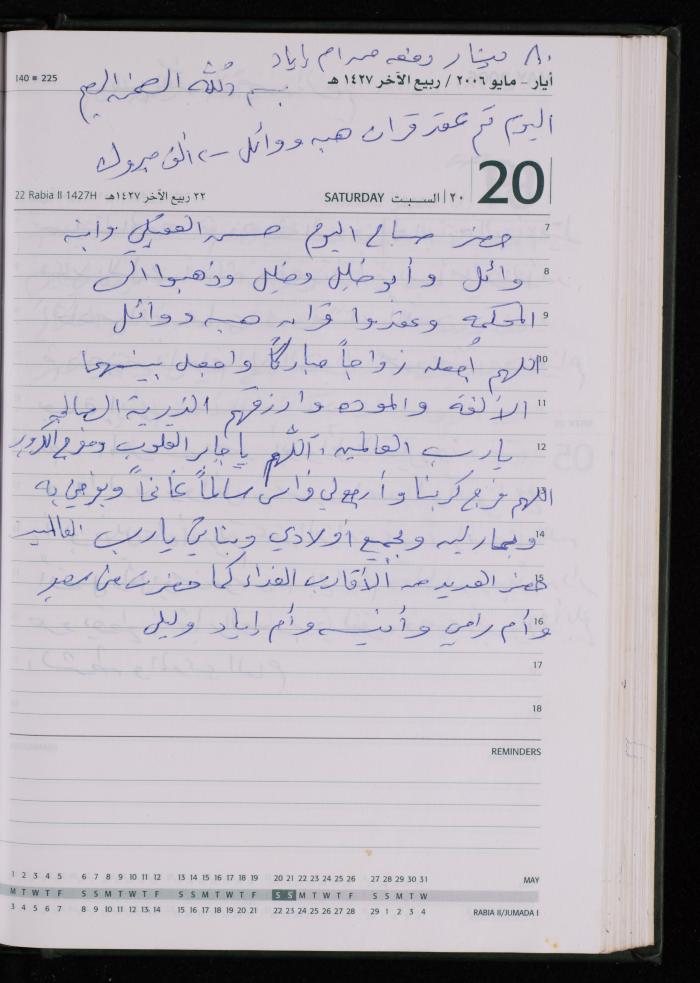 ٨٠ دينار دفعة من أم إياد
أيار - مايو ٢٠٠٦ / ربيع الآخر ١٤٢٧ هـ
140 ■ 225
بسم الله الرحمن الرحيم
اليوم تم عقد قران هبه ووائل ألف مبروك
20
SATURDAY ٢٠ | السبت
٢٢ ربيع الآخر ١٤٢٧هـ 22 Rabia II 1427H
7 حضر صباح اليوم حسن العقيلي وابنه
8 وائل وأبو خليل وخليل وذهبوا الى
9 المحكمه وعقدوا قران هبه ووائل
10 اللهم اجعله زواجاً مباركاً واجعل بينهما
11 الألفة والموده وارزقهم الذرية الصالحه
12 يارب العالمين، اللهم ياجابر القلوب ومفرج الكروب
13 اللهم فرج كربنا وأرجع لي فراس سالماً غانماً ويفرحني به
14 ولجميع أولادي وبناتي يارب العالمين
15 حضر العديد من الأقارب الغداء كما حضرت من
16 وأم رامي وأنيسه وأم إياد وليلى
17
18
REMINDERS
1 2 3 4 5 6 7 8 9 10 11 12 13 14 15 16 17 18 19 20 21 22 23 24 25 26 27 28 29 30 31 MAY
M T W T F S S M T W T F S S M T W T F S S M T W T F S S M T W
3 4 5 6 7 8 9 10 11 12 13 14 15 16 17 18 19 20 21 22 23 24 25 26 27 28 29 1 2 3 4 RABIA II/JUMADA I